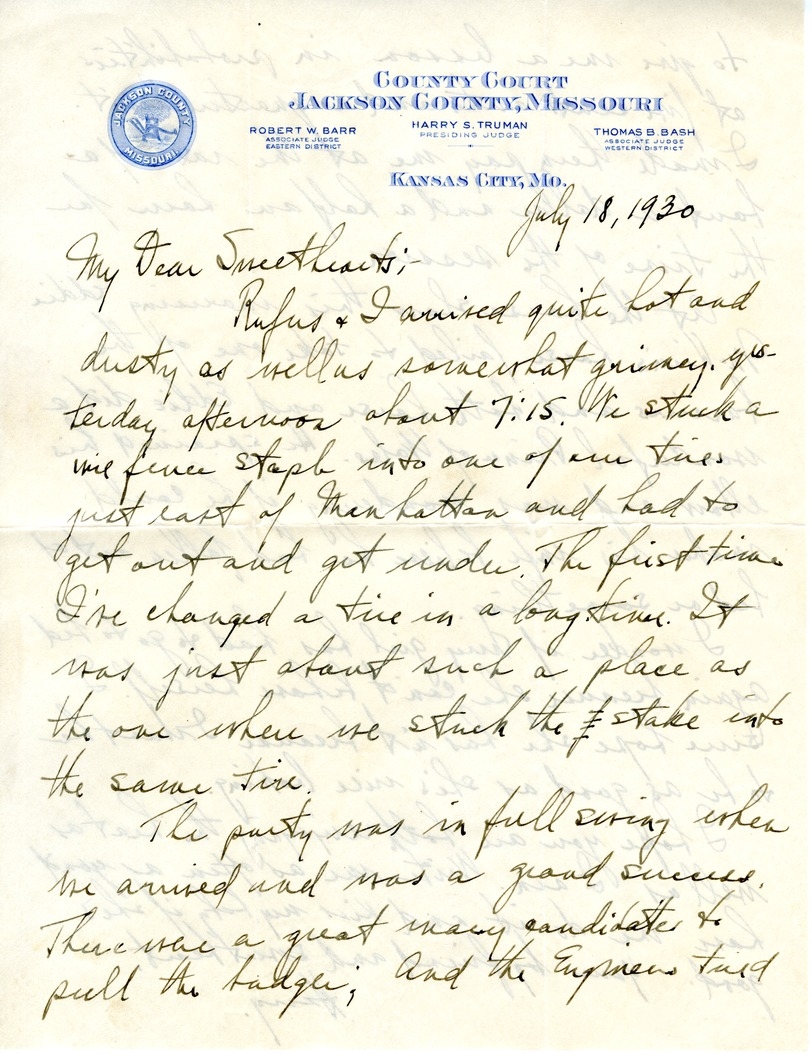 COUNTY COURT
JACKSON COUNTY, MISSOURI
JACKSON COUNTY
MISSOURI
ROBERT W. BARR
ASSOCIATE JUDGE
EASTERN DISTRICT
HARRY S. TRUMAN
PRESIDING JUDGE
THOMAS B. BASH
ASSOCIATE JUDGE
WESTERN DISTRICT
KANSAS CITY, MO.
July 18, 1930
My Dear Sweethearts;-
Rufus & I arrived quite hot and
dusty as well as somewhat grimey. yes-
terday afternoon about 7:15. We stuck a
wire fence staple into one of our tires
just east of Manhattan and had to
get out and get under. The first time
I've changed a tire in a long time. It
was just about such a place as
the one where we stuck the stake into
the same tire.
The party was in full swing when
we arrived and was a grand success.
There were a great many candidates to
pull the badger; And the Engineers tried